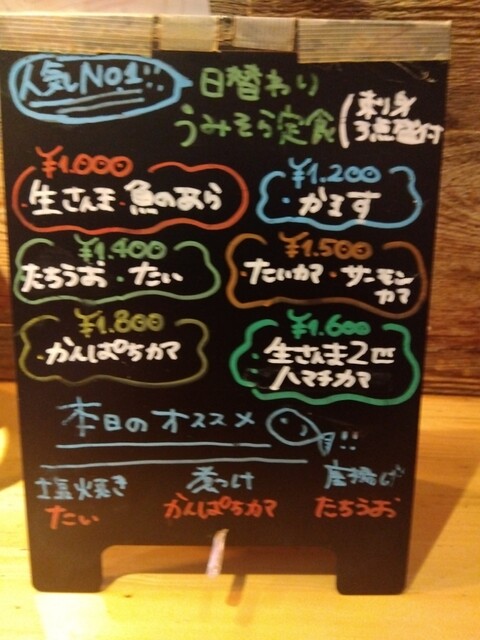 人気No1!!
日替わり
うみそら定食
(刺身
3点盛付
¥1.000
・生さんま・魚のあら
¥1.200
・かます
¥1.400
たちうお・たい
¥1.500
・たいカマ・サーモン
カマ
¥1.800
・かんぱちカマ
¥1.600
・生さんま2匹
ハマチカマ
本日のオススメ
!!
塩焼き
煮つけ
唐揚げ
たい
かんぱちカマ
たちうお